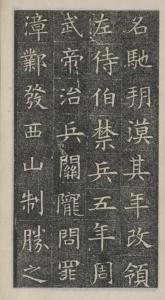 名馳朔漠其年改領
左侍伯禁兵五年周
武帝治兵關隴問罪
漳鄴發西山制勝之